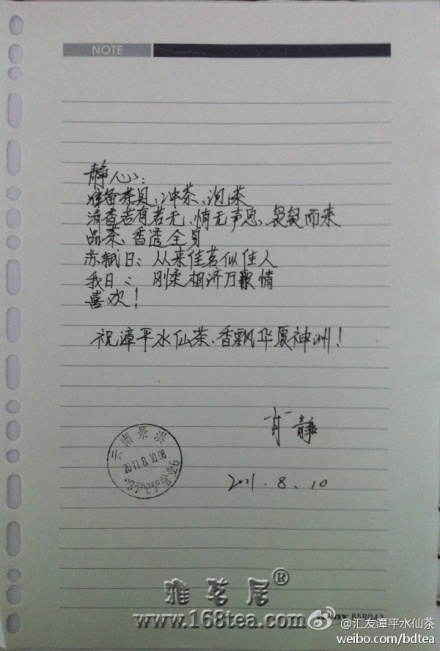 NOTE
静心:
准备茶具、冲茶、泡茶
清香若有若无,悄无声息、袅袅而来
品茶、香透全身
苏轼曰:从来佳茗似佳人
我曰: 刚柔相济万般情
喜欢!
祝漳平水仙茶、香飘华厦神洲!
静
2011.8.10
云南景洪
2011.8.10.08
雅茗居®
www.168tea.com
@汇友漳平水仙茶
weibo.com/bdtea